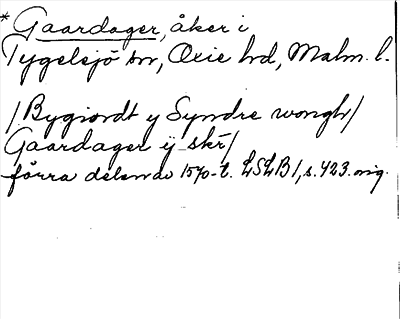 * Gaardager, åker i
Tygelsjö sn, Oxie hd, Malm. l.
/Bygiordt y Syndre wongh/
Gaardager ij skr̄/
förra delen av 1570-t. LSLB 1, s. 423. orig.